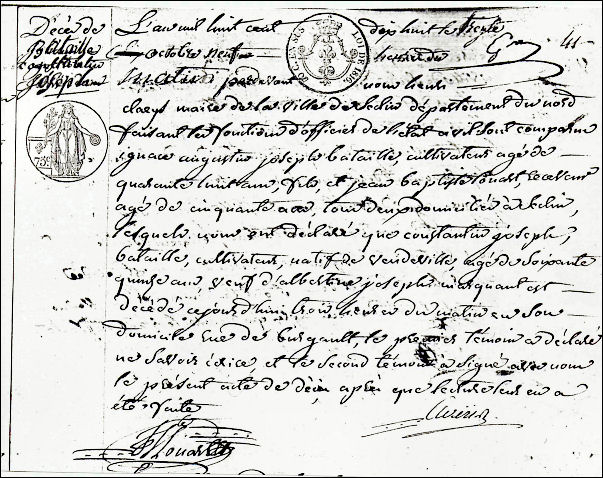 Décès de
Bataille
Constantin
Joseph
L'an mil huit cent dix huit le trente
octobre neuf heures du
par devant nous henri
claeys maire de la ville de Seclin département du nord
faisant les fonctions d'officier de l'état civil sont comparus
ignace augustin joseph bataille, cultivateur agé de
quarante huit ans, fils, et jean baptiste Rouart, receveur
agé de cinquante ans, tous deux domiciliés à Seclin,
lesquels nous ont déclaré que constantin joseph
bataille, cultivateur, natif de vendeville, agé de soixante
quinze ans, veuf d'albertine josephe marquant est
décédé cejourd'hui trois heures du matin en son
domicile rue de burgault, le premier témoin a déclaré
ne savoir écrire, et le second témoin a signé avec nous
le présent acte de décès après que lecture leur en a
été faite
75